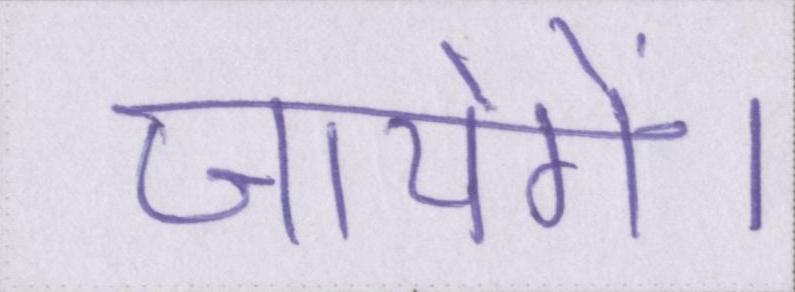 जायेंगें।